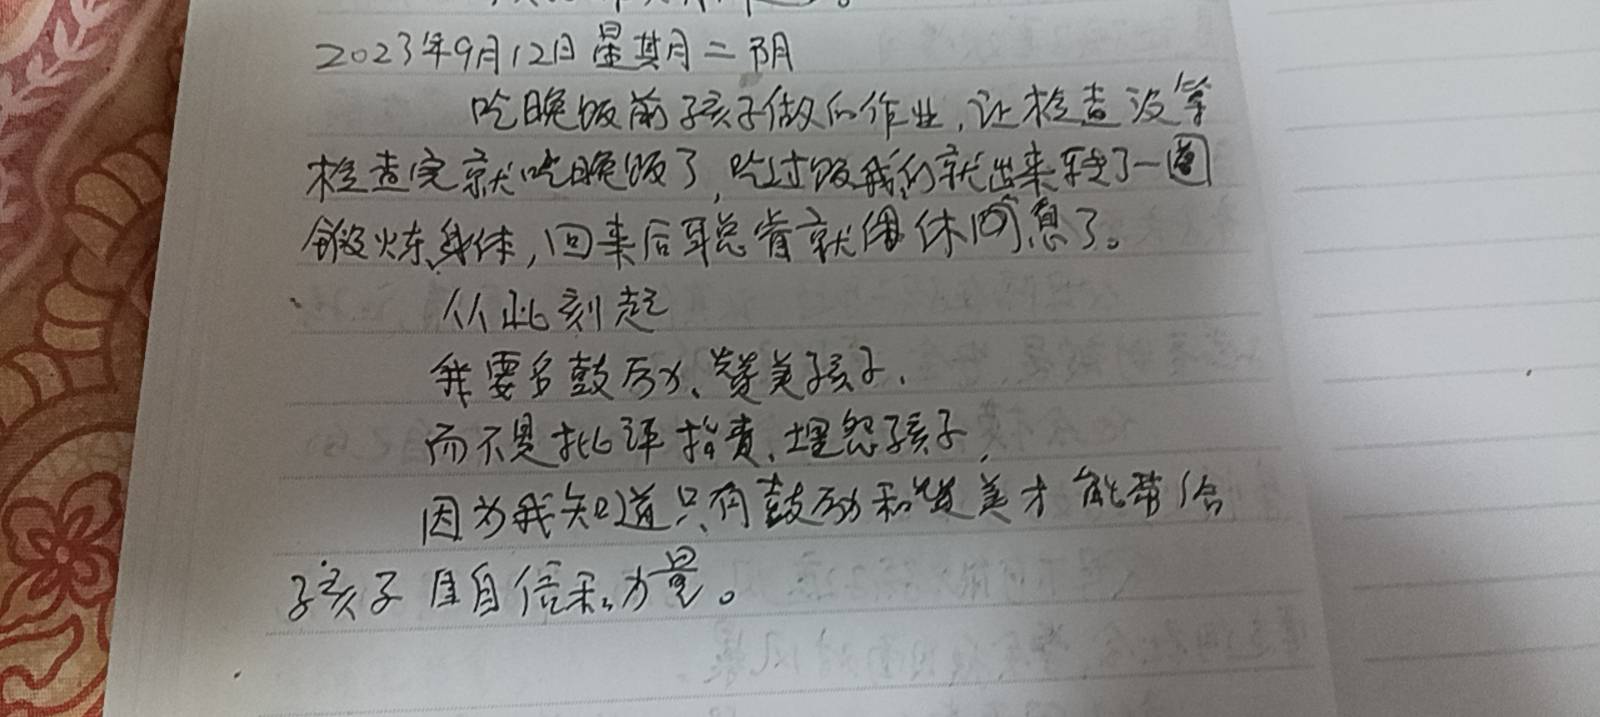 2023年9月12日 星期二 阴
吃晚饭前孩子做的作业,让检查没等
检查完就吃晚饭了,吃过饭我们就出来转了一圈
锻炼身体,回来后聪睿就休息了。
从此刻起
我要多鼓励、赞美孩子、
而不是批评指责、埋怨孩子,
因为我知道只有鼓励和赞美才能带给
孩子自信和力量。